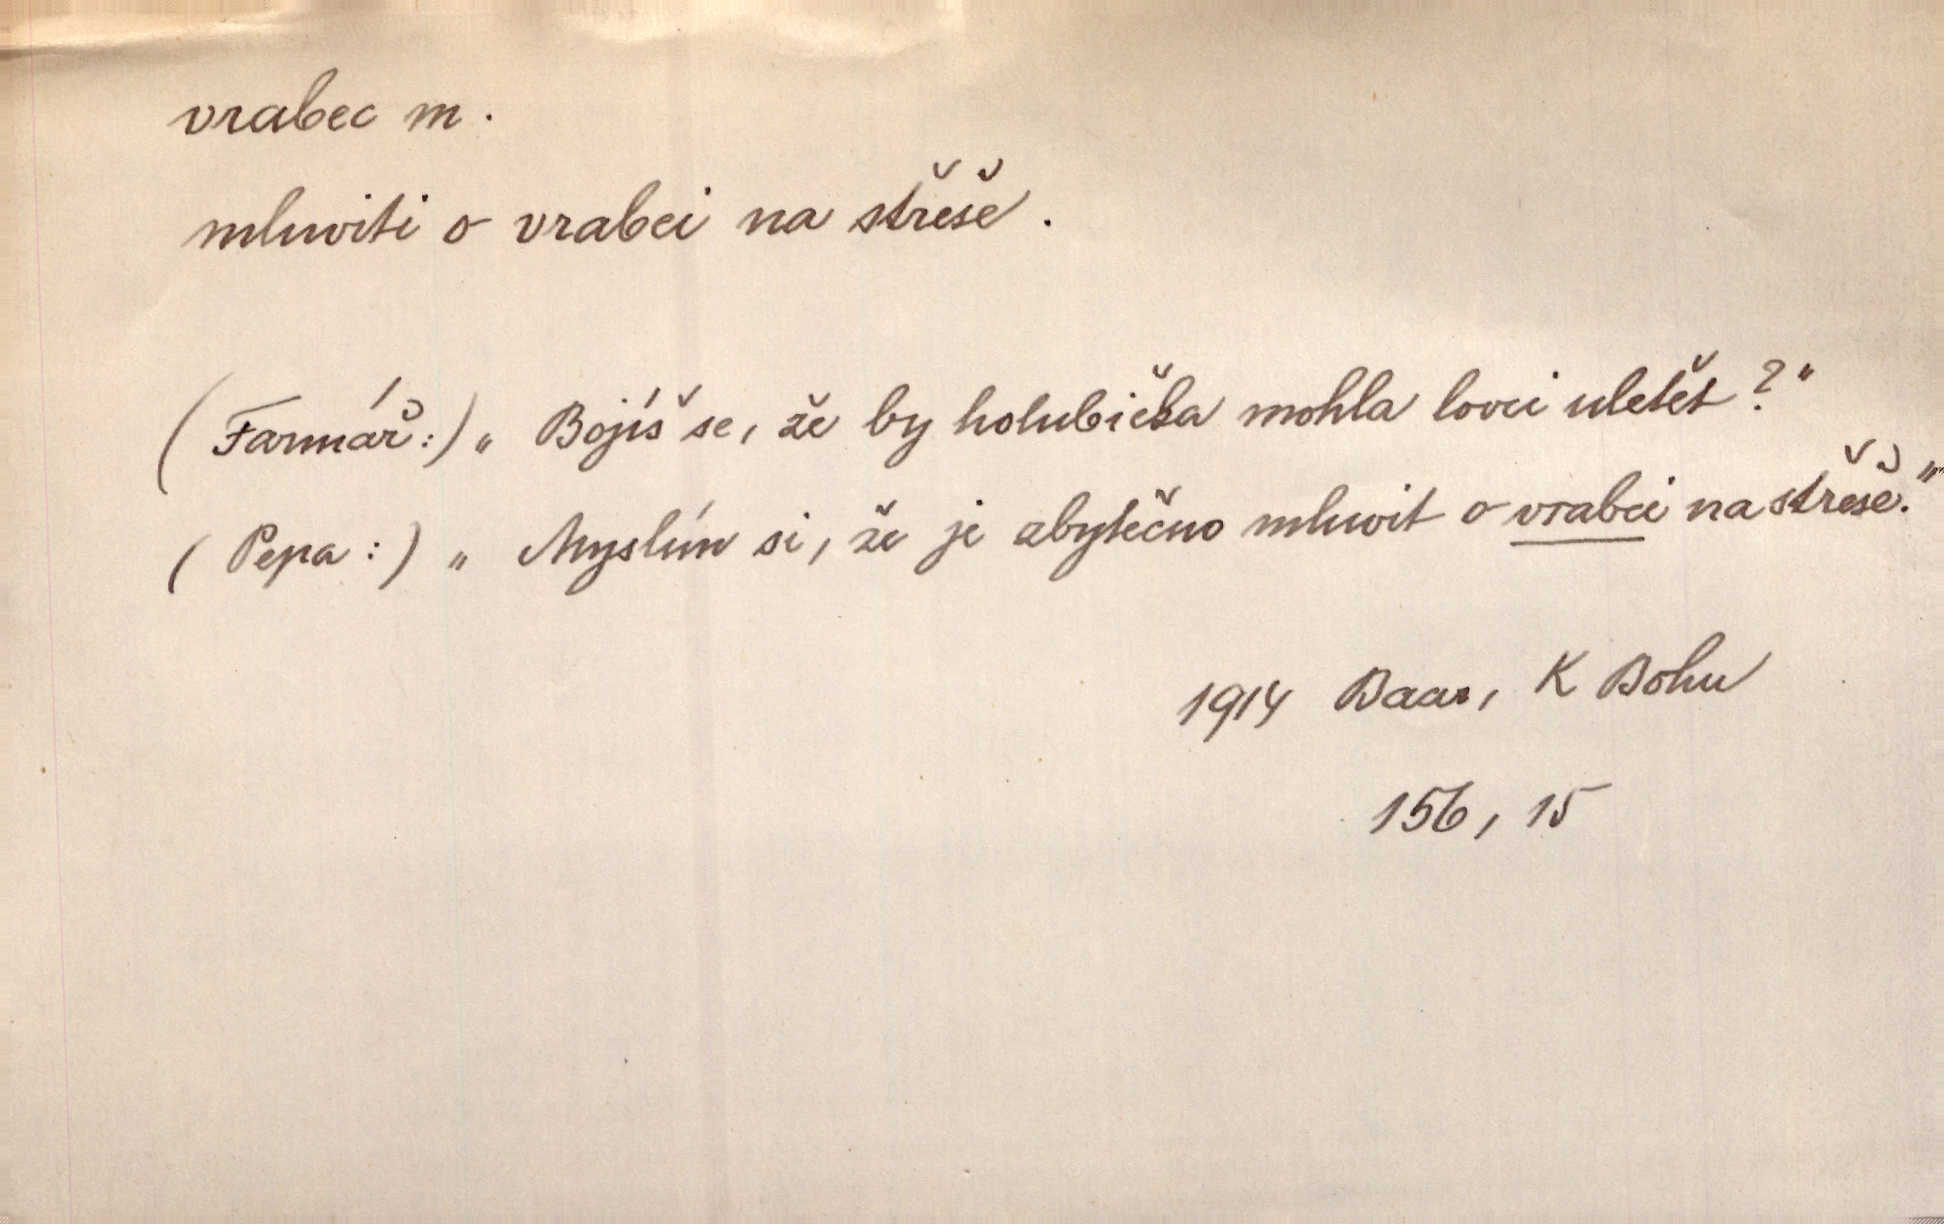 vrabec m.
mluviti o vrabci na střeše.
(Farmář:) „Bojíš se, že by holubička mohla lovci uletět?"
(Pepa:) „Myslím si, že je zbytečno mluvit o vrabci na střeše."
1914 Baar, K Bohu
156, 15